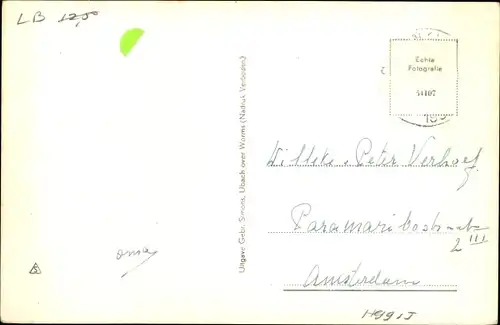 LB 12,50
Echte
Fotografie
54107
Uitgave Gebr. Simons, Ubach over Worms (Nadruk Verboden)
Willeke & Peter Verhoef
Paramaribostr
2 III
oma
Amsterdam